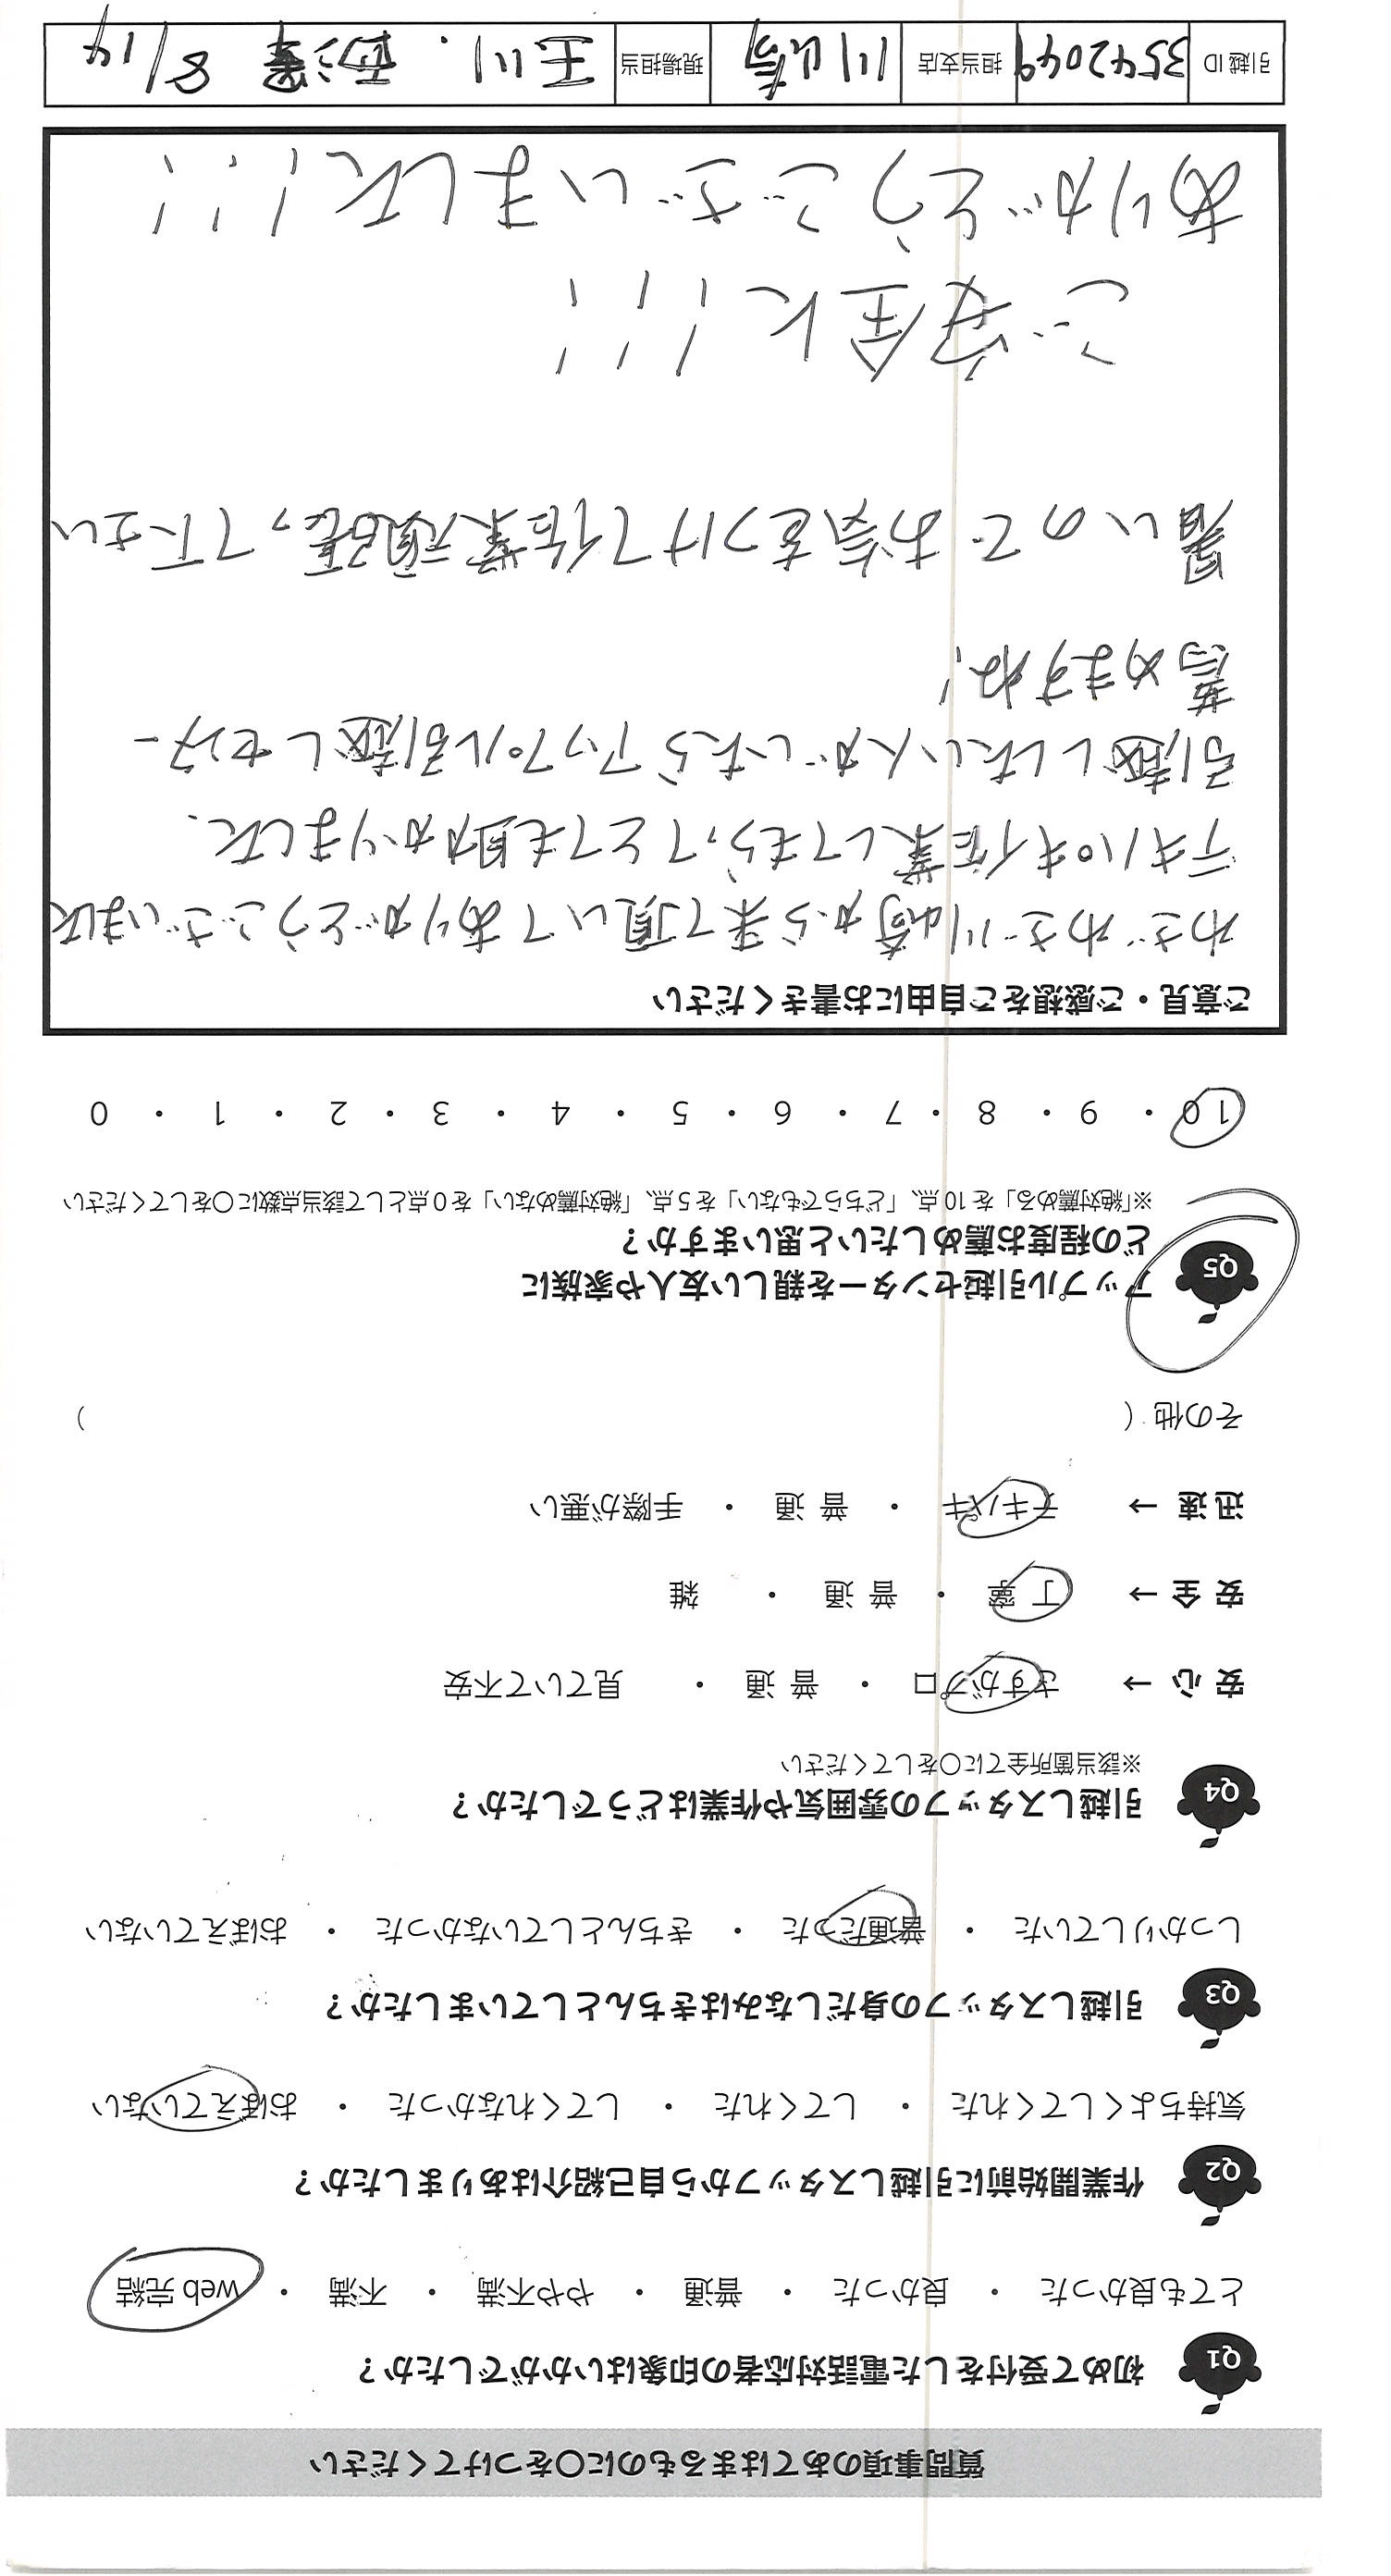 質問事項のあてはまるものに〇をつけてください
Q1 初めて受付をした電話対応者の印象はいかがでしたか？
とても良かった ・ 良かった ・ 普通 ・ やや不満 ・ 不満 ・ web 完結
Q2 作業開始前に引越しスタッフから自己紹介はありましたか？
気持ちよくしてくれた ・ してくれた ・ してくれなかった ・ おぼえていない
Q3 引越しスタッフの身だしなみはきちんとしていましたか？
しっかりしていた ・ 普通だった ・ きちんとしていなかった ・ おぼえていない
Q4 引越しスタッフの雰囲気や作業はどうでしたか？
※該当箇所全てに〇をしてください
安 心 → さすがプロ ・ 普 通 ・ 見ていて不安
安 全 → 丁 寧 ・ 普 通 ・ 雑
迅 速 → テキパキ ・ 普 通 ・ 手際が悪い
その他（ ）
Q5 アップル引越センターを親しい友人や家族に
どの程度お薦めしたいと思いますか？
※「絶対薦める」を 10 点、「どちらでもない」を 5 点、「絶対薦めない」を 0 点として該当点数に〇をしてください
10 ・ 9 ・ 8 ・ 7 ・ 6 ・ 5 ・ 4 ・ 3 ・ 2 ・ 1 ・ 0
ご意見・ご感想をご自由にお書きください
わざわざ川崎から来て頂いてありがとうございました
テキパキ作業してもらってとても助かりました.
引越ししたい人がいたらアップル引越しセンター
薦めますね!
暑いのでお気をつけて作業頑張って下さい
ご安全に!!!
ありがとうございました!!!
引越 ID 3542049 担当支店 川崎 現場担当 玉川. 8/14